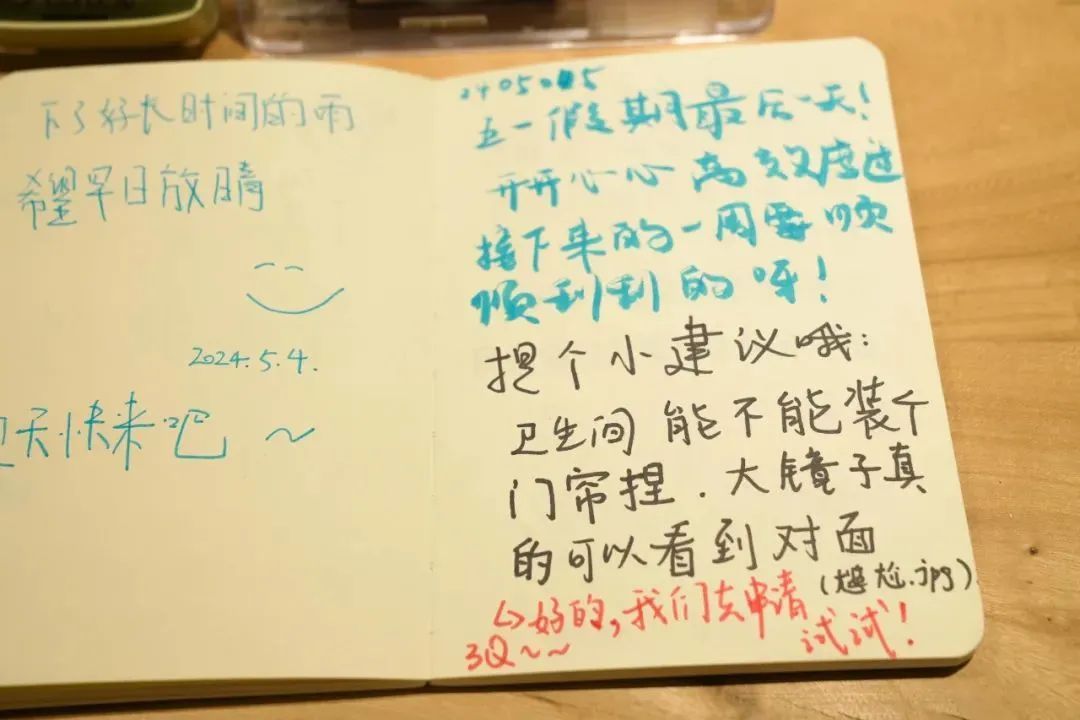 下了好长时间的雨
希望早日放晴
2024.5.4.
天快来吧 ~
240505
五一假期最后一天!
开开心心高效度过
接下来的一周要顺
顺利利的呀!
提个小建议哦:
卫生间能不能装个
门帘捏.大镜子真
的可以看到对面
(尴尬.jpg)
↳好的,我们去申请
试试!
3Q~~